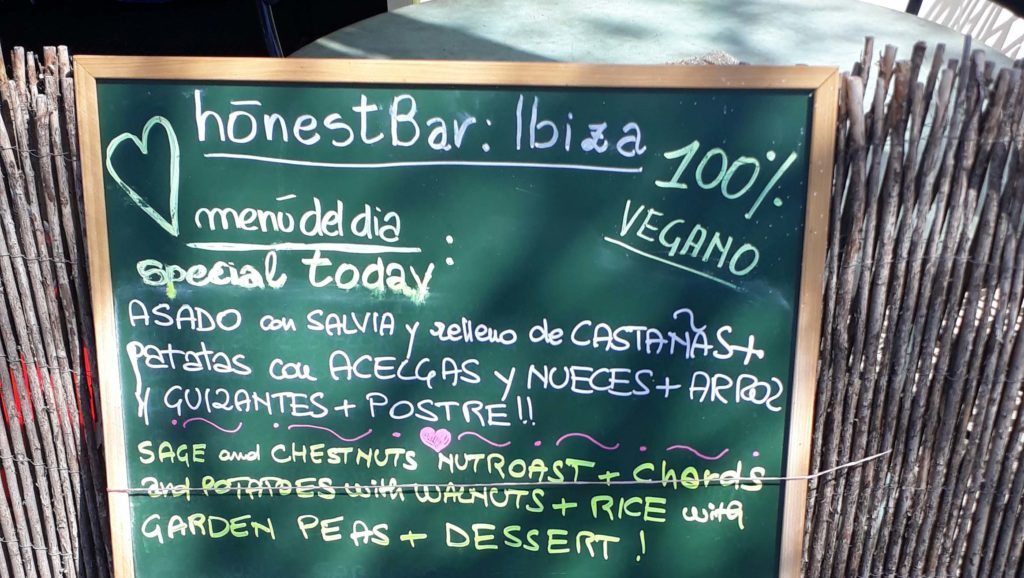 hōnestBar: Ibiza
100%
VEGANO
menú del dia
special today:
ASADO con SALVIA y relleno de CASTAÑAS+
patatas con ACELGAS y NUECES + ARROZ
y GUIZANTES + POSTRE!!
SAGE and CHESTNUTS NUTROAST + Chards
and POTATOES with WALNUTS + RICE with
GARDEN PEAS + DESSERT!